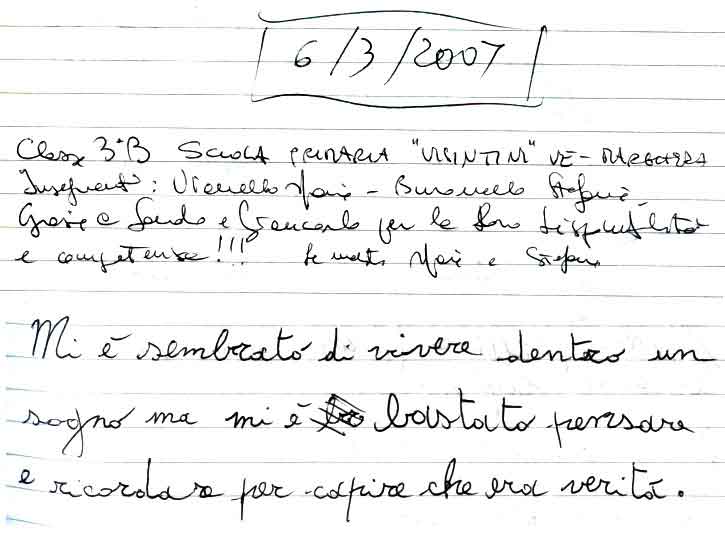 6/3/2007
Classe 3ªB SCUOLA PRIMARIA "VISINTINI" VE-MARGHERA
Insegnanti: Vianello Maria - Buranello Stefania
Grazie a Sandro e Giancarlo per la loro disponibilità
e competenza!!! Le maestre Maria e Stefania
Mi è sembrato di vivere dentro un
sogno ma mi è bastato pensare
e ricordare per capire che era verità.